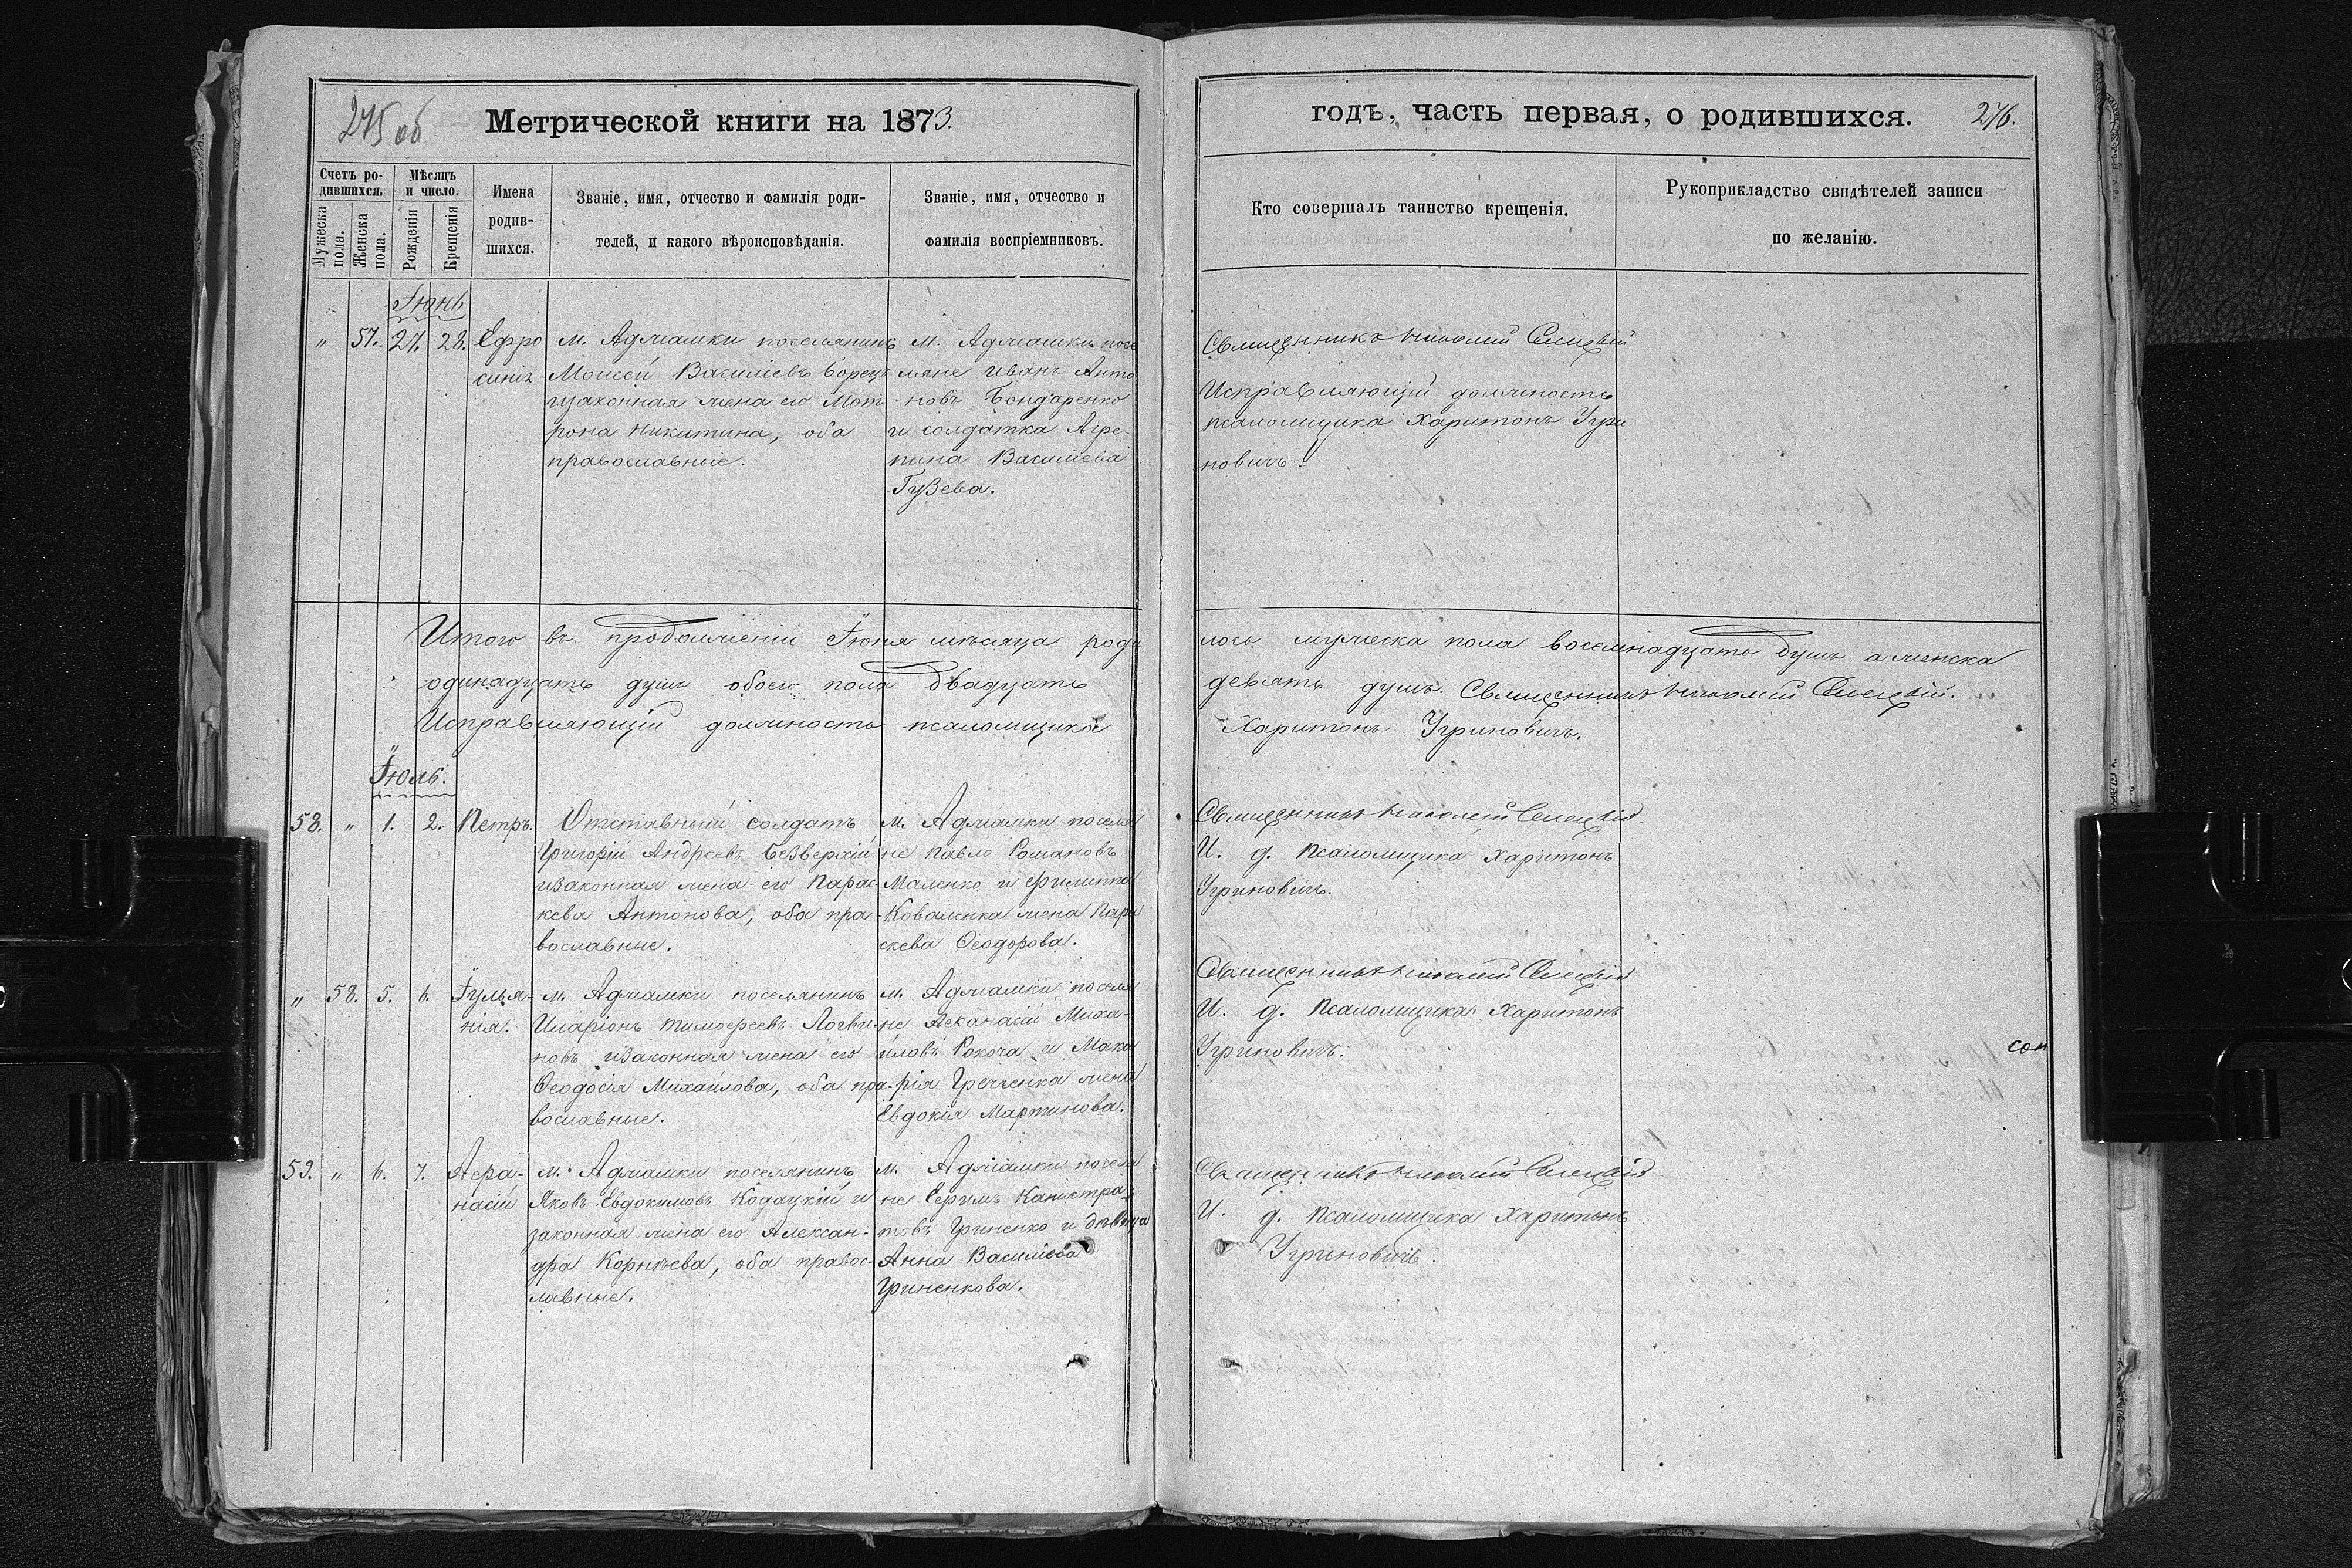 275 об
Метрической книги на 1873.
годъ, часть первая, о родившихся.
276.
Счетъ ро-
дившихся.
Мужеска
пола.
Женска
пола.
Мѣсяцъ
и число.
Рожденія
Крещенія
Имена
родив-
шихся.
Званіе, имя, отчество и фамилія роди-
телей, и какого вѣроисповѣданія.
Званіе, имя, отчество и
фамилія воспріемниковъ.
Кто совершалъ таинство крещенія.
Рукоприкладство свидѣтелей записи
по желанію.
Іюнь
" 57. 27. 28.
Ефро
синія
м. Аджамки поселянинъ
Моисей Василіевъ Борецъ
изаконная жена его Мот
рона Никитина, оба
православные.
м. Аджамки посе
ляне Иванъ Анто
новъ Бондаренко
и солдатка Агре-
пина Василіева
Гузева.
Священникъ Николай
Исправляющій должность
псаломщика Харитонъ Угри
новичъ.
Итого въ продолженіи Іюня мѣсяца роди
лось мужеска пола восемнадцать душъ а женска
одинадцать душъ обоего пола двадцать
девять душъ. Священникъ Николай
Исправляющій должность псаломщика
Харитонъ Угриновичъ.
Іюль.
58. " 1. 2.
Петръ.
Отставный солдатъ
Григорій Андреевъ Безверхій
изаконная жена его Парас-
кева Антонова, оба пра-
вославные.
м. Аджамки поселя
не Павло Романовъ
Маленко и Филиппа
Коваленка жена Пара
скева Ѳеодорова.
Священникъ Николай
И. д. псаломщика Харитонъ
Угриновичъ.
" 58. 5. 6.
Іулья-
нія.
м. Аджамки поселянинъ
Иларіонъ Тимофеевъ Логви-
новъ изаконная жена его
Ѳеодосія Михайлова, оба пра-
вославные.
м. Аджамки поселя
не Афанасій Миха-
йловъ Рокоча и Мака
рія Гречченка жена
Евдокія Мартинова.
Священникъ Николай
И. д. псаломщика Харитонъ
Угриновичъ.
59. " 6. 7.
Афа-
насій
м. Аджамки поселянинъ
Яковъ Евдокимовъ Кодацкій и
законная жена его Алексан-
дра Корнѣева, оба правос-
лавные.
м. Аджамки поселя
не Ефимъ Каністра
товъ Гриненко и дѣвица
Анна Василіева
Гриненкова.
Священникъ Николай
И. д. псаломщика Харитонъ
Угриновичъ.